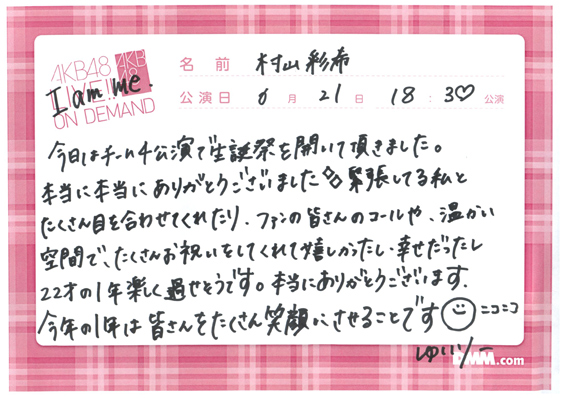 AKB48
LIVE!!
ON DEMAND
AKB
48
I am me.
名前 村山彩希
公演日 6月21日 18:30公演
今日はチーム4公演で生誕祭を開いて頂きました。
本当に本当にありがとうございました 緊張してる私と
たくさん目を合わせてくれたり、ファンの皆さんのコールや、温かい
空間で、たくさんお祝いをしてくれて嬉しかったし・幸せだったし
22才の1年楽しく過せそうです。本当にありがとうございます.
今年の1年は皆さんをたくさん笑顔にさせることです ニコニコ
ゆいりー
DMM.com